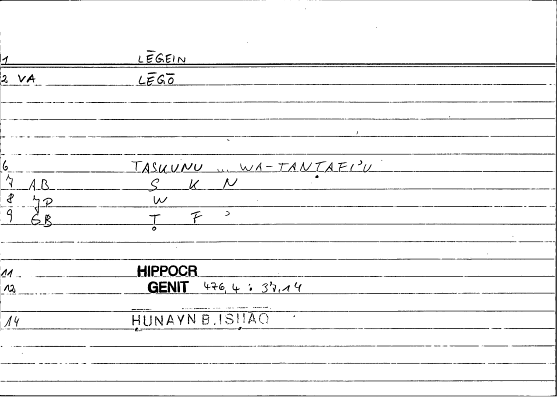 1 LĒGEIN
2 VA LĒGŌ
6 TASKUNU ... WA-TANṬAFI'U
7 AB S K N
8 7D W
9 GB Ṭ F '
11 HIPPOCR
12 GENIT 476,4 : 37,14
14 ḤUNAYN B.ISḤĀQ